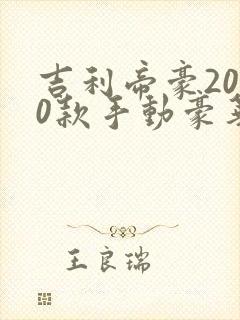 吉利帝豪20
0款手動豪華
王良瑞